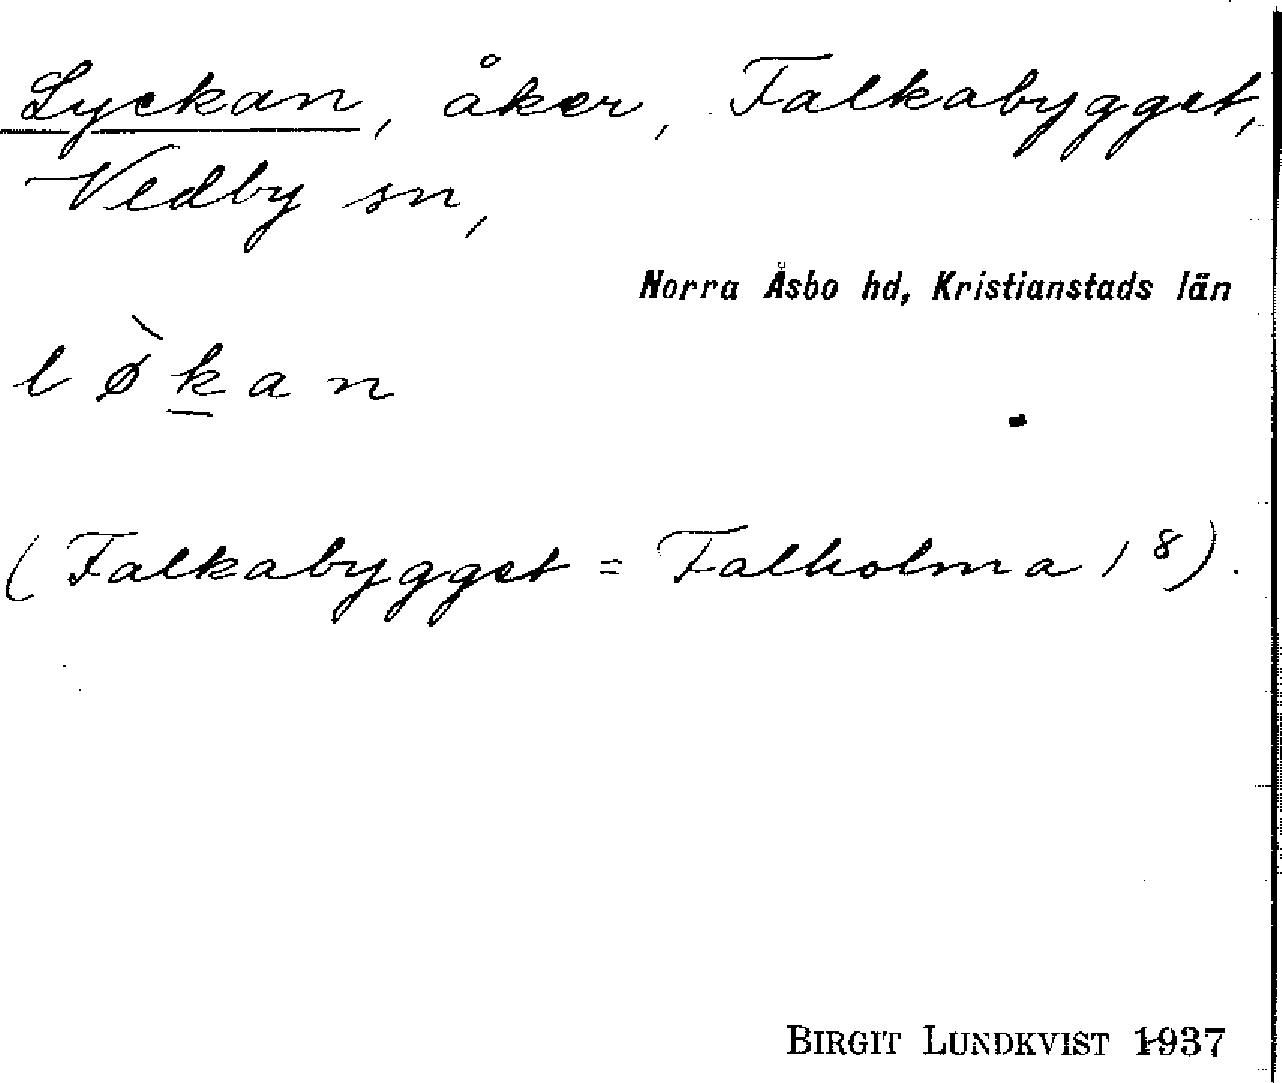 Lyckan, åker, Falkabygget,
Vedby sn,
Norra Åsbo hd, Kristianstads län
lø̀kan
(Falkabygget = Falholma 1⁸).
BIRGIT LUNDKVIST 1937